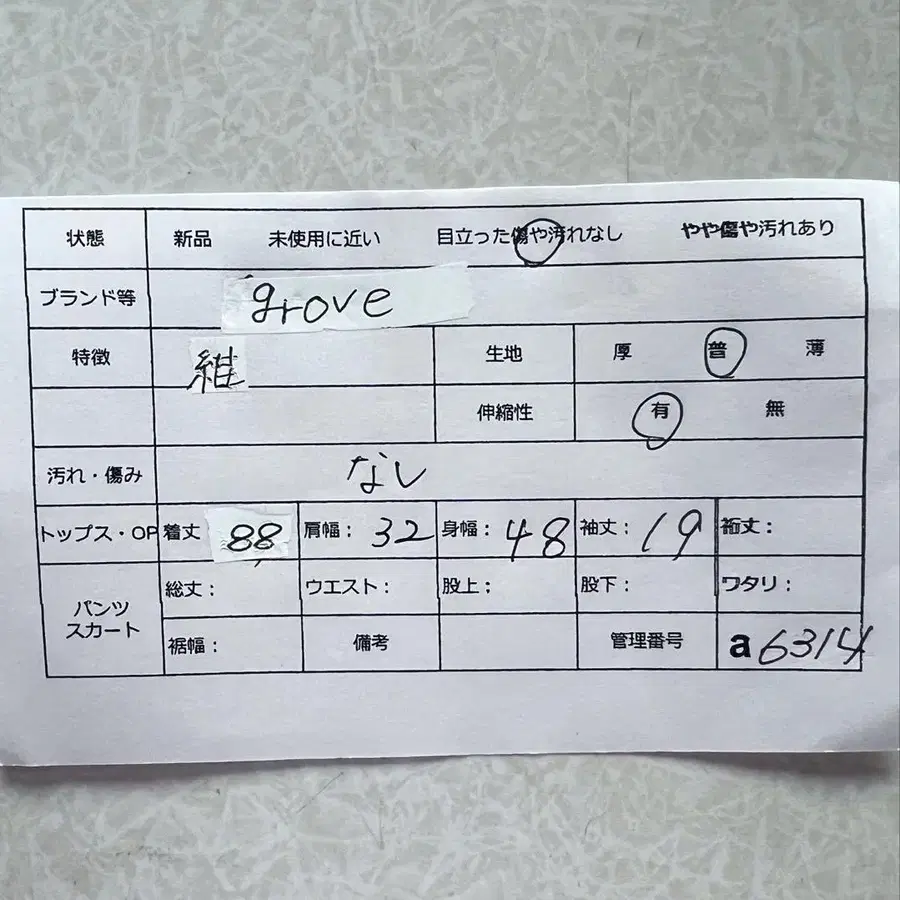 状態 新品 未使用に近い 目立った傷や汚れなし やや傷や汚れあり
ブランド等 grove
特徴 生地 厚 普 薄
伸縮性 有 無
汚れ・傷み なし
トップス・OP 着丈 88 肩幅: 32 身幅: 48 袖丈: 19 裄丈:
パンツ スカート 総丈: ウエスト: 股上; 股下: ワタリ:
裾幅: 備考 管理番号 a6314